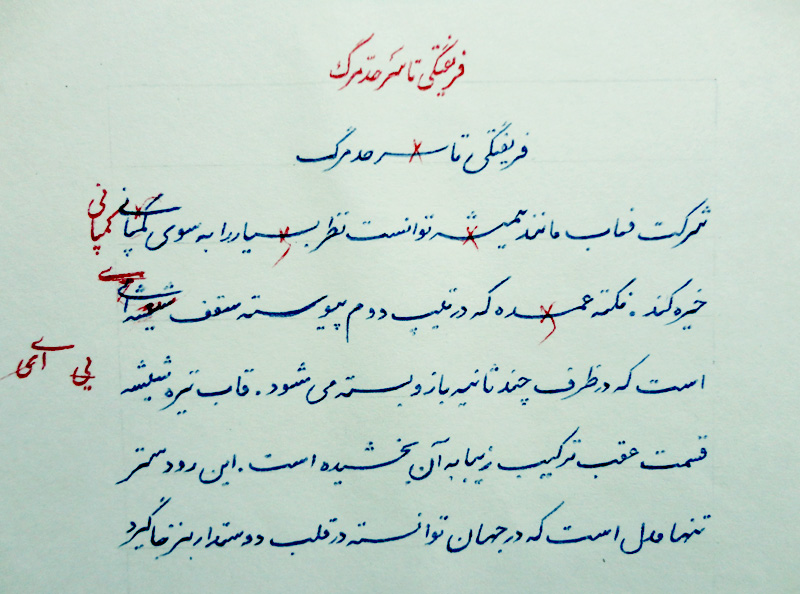 فریفتگی تا سرحد مرگ
فریفتگی تا سر حد مرگ
شرکت فعاب مانند همیشه توانست نظر بسیار را به سوی کمپانی
کمپانی
خیره کند. نکته عمده که در تیپ دوم پیوسته سقف شیشه ای
ای
است که در ظرف چند ثانیه باز و بسته می شود. قاب تیره شیشه
یی ای
قسمت عقب ترکیب زیبا به آن بخشیده است. این رودستر
تنها مدل است که در جهان توانسته در قلب دوستدار بنز جا گیرد